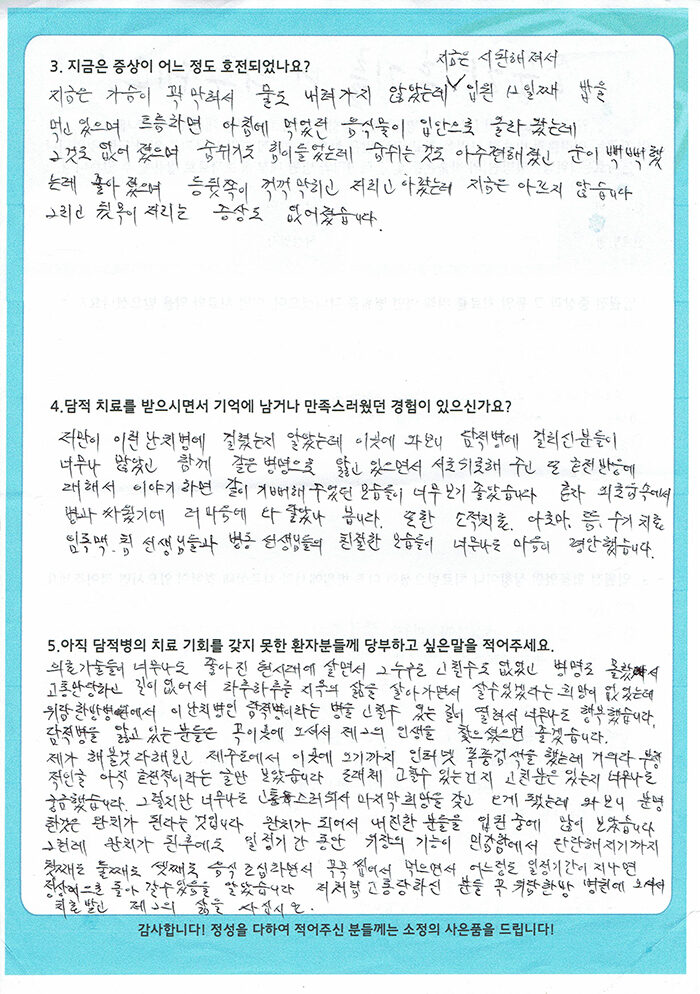 3. 지금은 증상이 어느 정도 호전되었나요?
지금은 시원해져서
지금은 가슴이 꽉 막혀서 물도 내려가지 않았는데 ∨ 입원 12일째 밥을
먹고 있으며 트름하면 아침에 먹었던 음식물이 입안으로 올라 왔는데
그것도 없어 졌으며 숨쉬기도 힘이 들었는데 숨쉬는 것도 아주편해졌고 눈이 뻑뻑했
는데 좋아 졌으며 등뒷쪽이 꺽꺽 막히고 저리고 아팠는데 지금은 아프지 않습니다
그리고 뒷목이 저리는 증상도 없어졌습니다.
4.담적 치료를 받으시면서 기억에 남거나 만족스러웠던 경험이 있으신가요?
저만이 이런 난치병에 걸렸는지 알았는데 이곳에 와보니 담적병에 걸리신분들이
너무나 많았고 함께 같은 병명으로 앓고 있으면서 서로 위로해 주고 또 호전반응에
대해서 이야기 하면 같이 기뻐해 주었던 모습들이 너무 보기 좋았습니다 혼자 외로움속에서
병과 싸웠기에 더 마음에 다 닿았나 봅니다. 또한 소적치료. 아로마, 뜸, 수기 치료
림독맥. 침 선생님들과 병동 선생님들의 친절한 모습들이 너무나도 마음이 평안했습니다.
5.아직 담적병의 치료 기회를 갖지 못한 환자분들께 당부하고 싶은말을 적어주세요.
의료기술들이 너무나도 좋아진 현시대에 살면서 그 누구도 고칠수도 없었고 병명도 몰랐
고통만당하고 길이 없어서 하루하루를 지옥의 삶을 살아가면서 살수있겠다는 희망이 없었는데
위담한방병원에서 이 난치병인 담적병이라는 병을 고칠수 있는 길이 열려서 너무나도 행복했습니다.
담적병을 앓고 있는분들은 꼭 이곳에 오셔서 제2의 인생을 찾으셨으면 좋겠습니다.
제가 해볼것 다해보고 제주도에서 이곳에 오기까지 인터넷 후증검색을 했는데 거의다 부정
적인글 아직 호전적이라는 글만 보았습니다 도대체 고칠수 있는건지 고친분은 있는지 너무나도
궁금했습니다. 그렇지만 너무나도 고통스러워서 마지막 희망을 갖고 오게 됐는데 와 보니 분명
한것은 완치가 된다는 것입니다 완치가 되어서 내원한 분들을 입원 중에 많이 보았습니다
그런데 완치가 된후에도 일정기간 동안 위장의 기능이 민감함에서 단단해지기까지
첫째도 둘째도 셋째도 음식 조심하면서 꼭꼭 씹어서 먹으면서 어느정도 일정기간이 지나면
정상적으로 돌아 갈수있음을 알았습니다 저처럼 고통당하신 분들 꼭 위담한방 병원에 오셔서
치료받고 제2의 삶을 사십시요.
감사합니다! 정성을 다하여 적어주신 분들께는 소정의 사은품을 드립니다!